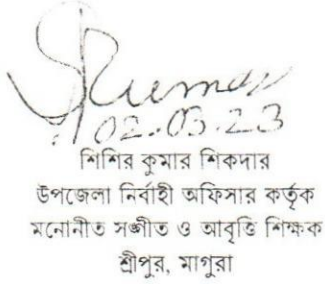 SKumar
02.03.23
শিশির কুমার শিকদার
উপজেলা নির্বাহী অফিসার কর্তৃক
মনোনীত সঙ্গীত ও আবৃত্তি শিক্ষক
শ্রীপুর, মাগুরা